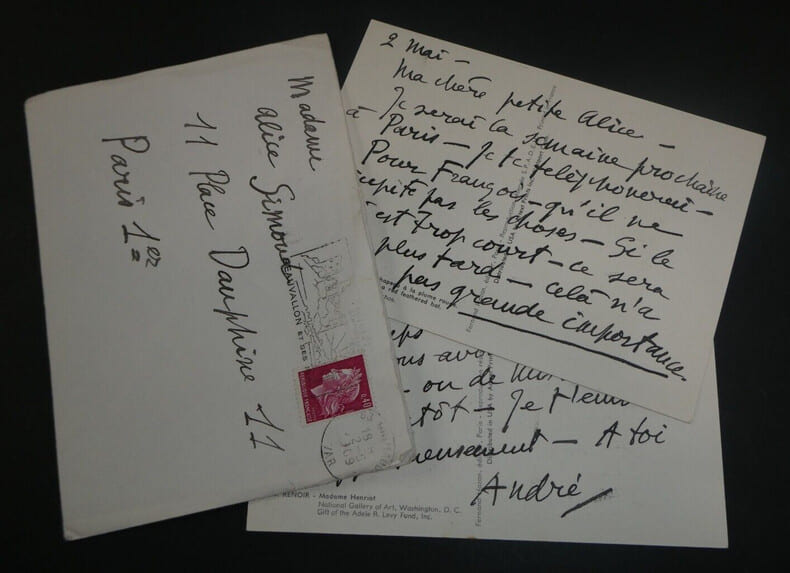 Madame
Alice Simond
11 Place Dauphine 11
Paris 1er
RÉPUBLIQUE FRANÇAISE
0,40
BEAUVALLON ET SES
VAR
2 mai -
Ma chère petite Alice -
Je serai la semaine prochaine
à Paris - Je te téléphonerai -
Pour François - qu'il ne
pas les choses - Si le
c'est trop court - ce sera
plus tard - celà n'a
pas grande importance.
a red feathered hat.
ou de
Je
A toi
André
RENOIR - Madame Henriot
National Gallery of Art, Washington, D. C.
Gift of the Adele R. Levy Fund, Inc.